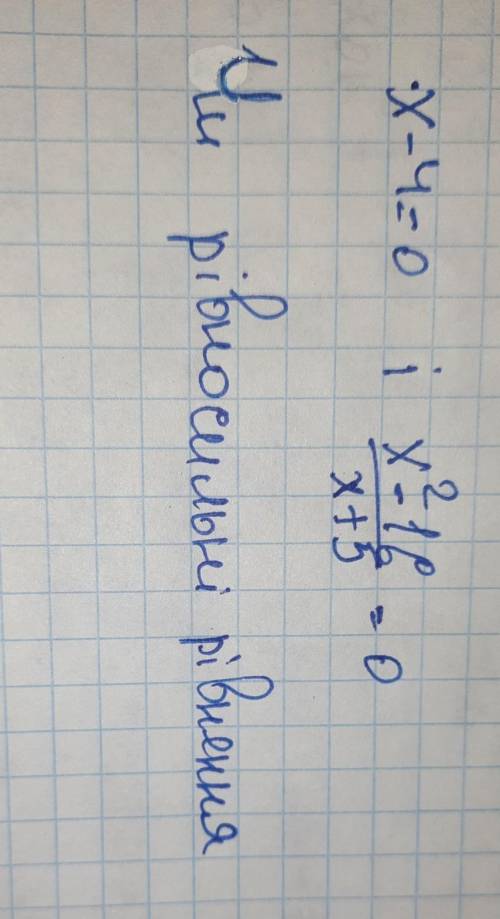 x - 4 = 0 і (x² - 16)/(x + 5) = 0
Чи рівносильні рівняння